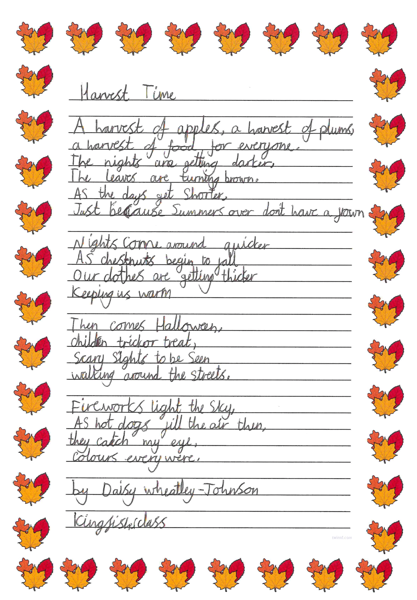 Harvest Time
A harvest of apples, a harvest of plums,
a harvest of food for everyone.
The nights are getting darker,
The leaves are turning brown.
AS the days get Shorter,
Just because Summers over dont have a frown
Nights Come around quicker
AS chestnuts begin to fall
Our clothes are getting thicker
Keeping us warm
Then comes Halloween,
children trickor treat,
Scary Sights to be Seen
walking around the streets.
Fireworks light the Sky,
AS hot dogs fill the air then,
they catch my eye,
Colours everywere.
by Daisy wheatley-Johnson
Kingfisherclass